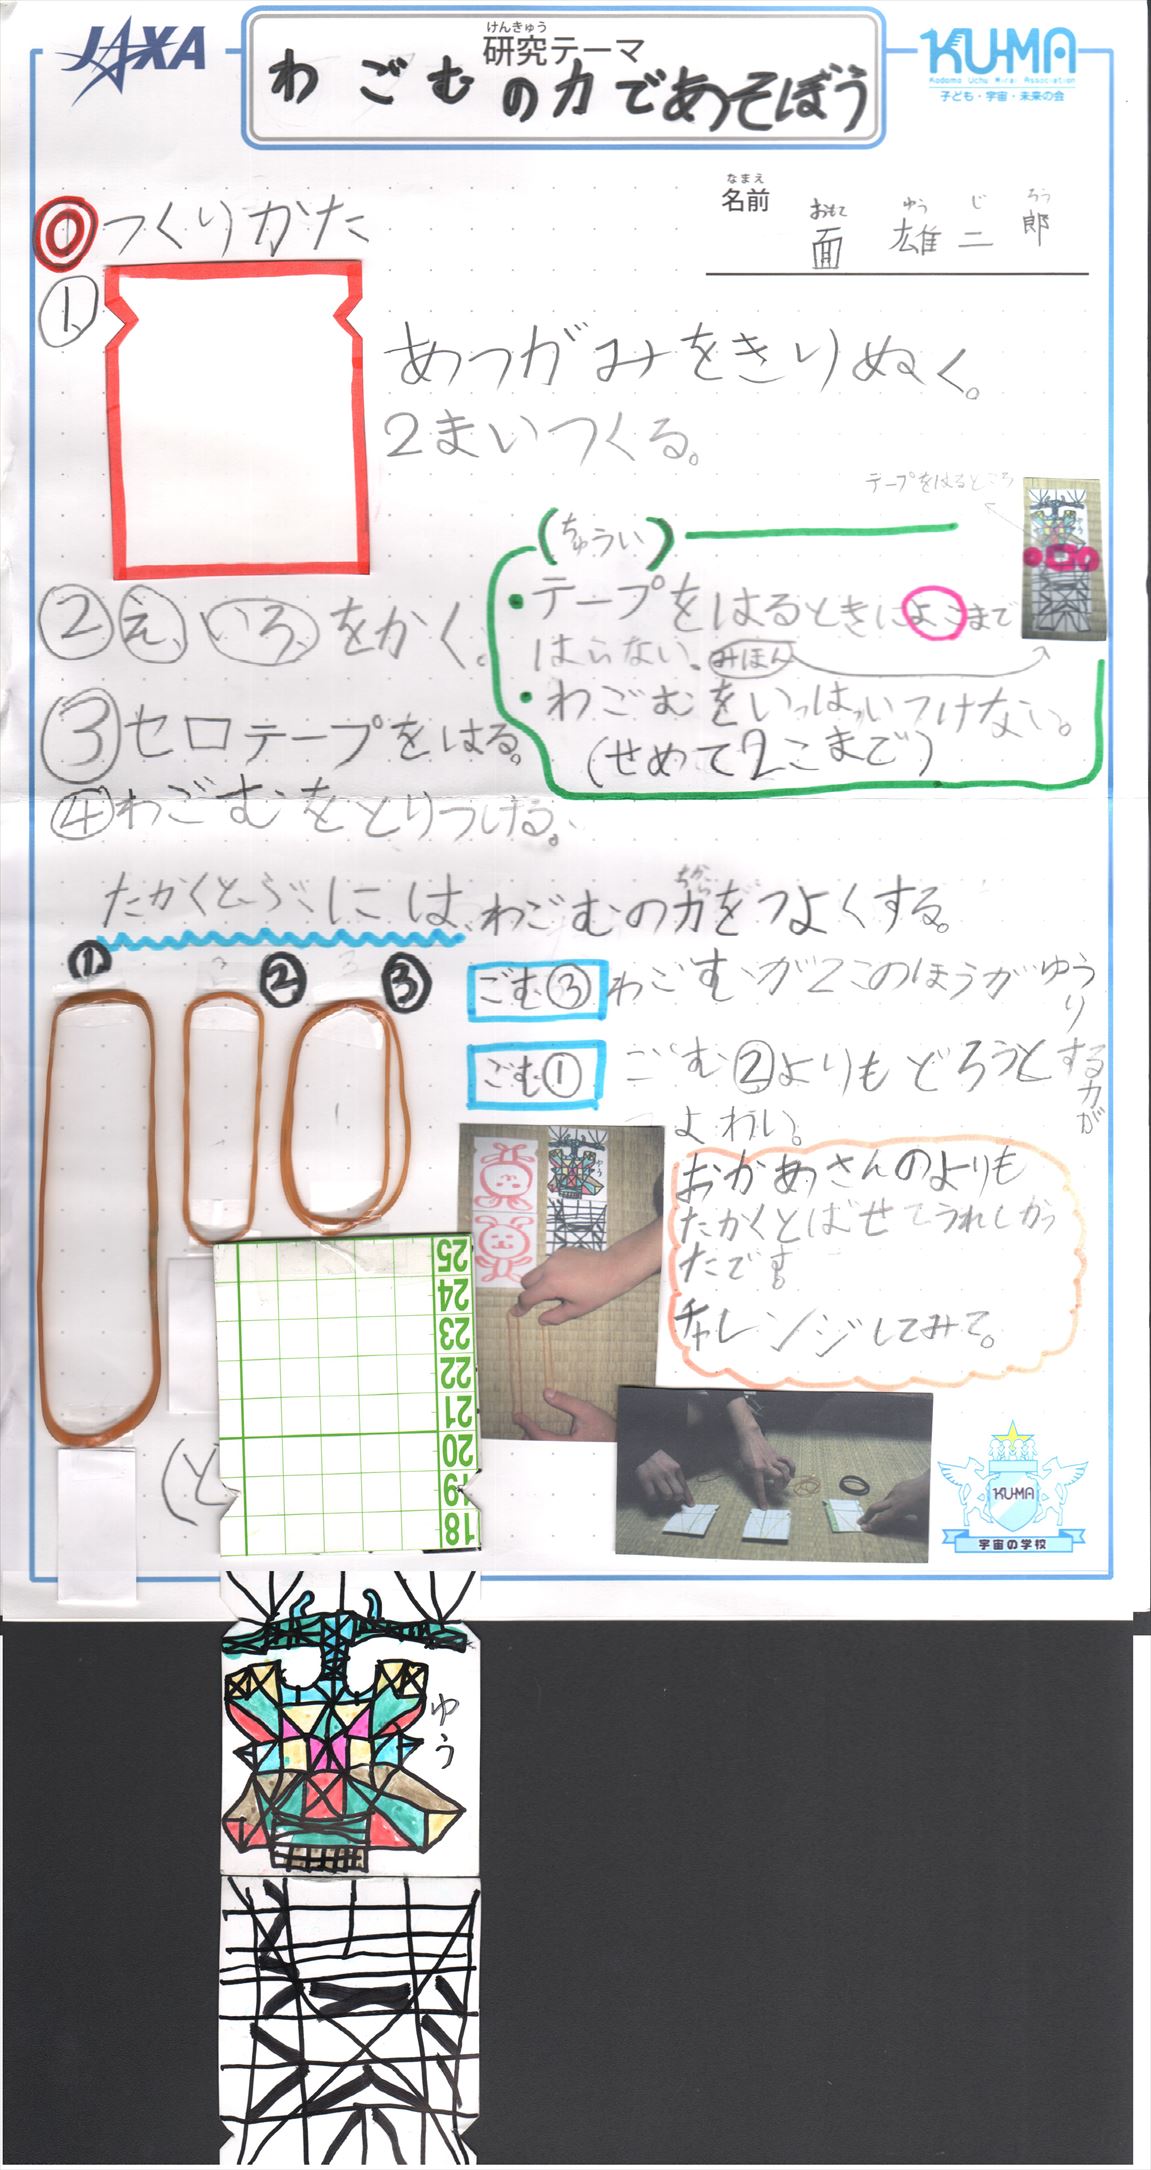 JAXA
けんきゅう
研究テーマ
わごむの力であそぼう
KU-MA
Kodomo Uchu Mirai Association
子ども・宇宙・未来の会
なまえ
名前
おもて ゆう じ ろう
面 雄二郎
◎つくりかた
① あつがみをきりぬく。
2まいつくる。
テープをはるところ
(ちゅうい)
・テープをはるときによこまで
はらない。みほん
・わごむをいっぱいつけない。
(せめて2こまで)
②え、いろ、をかく。
③セロテープをはる。
④わごむをとりつける。
ちから
たかくとぶには、わごむの力をつよくする。
① ② ③
ごむ③ わごむが2このほうがゆうり
ごむ① ごむ②よりもどろうとする力が
よわい。
おかあさんのよりも
たかくとばせてうれしかっ
たです。
チャレンジしてみて。
25
24
23
22
21
20
19
18
(と
KU-MA
宇宙の学校
ゆう